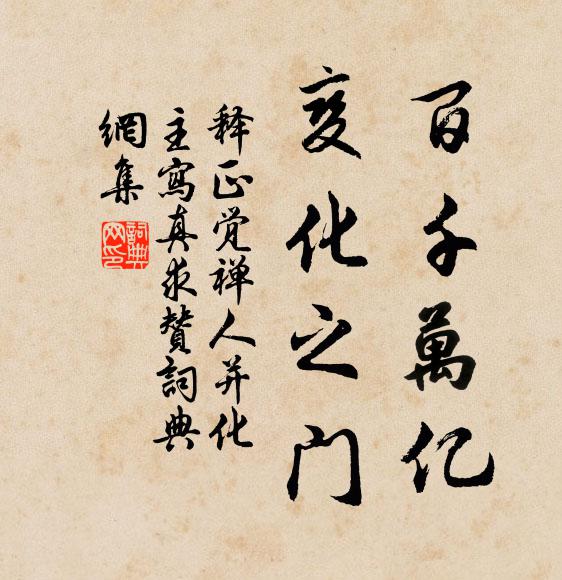 百千萬亿
变化之门
释正觉禅人并化
主寫真求賛詞典
網集
詞典网印